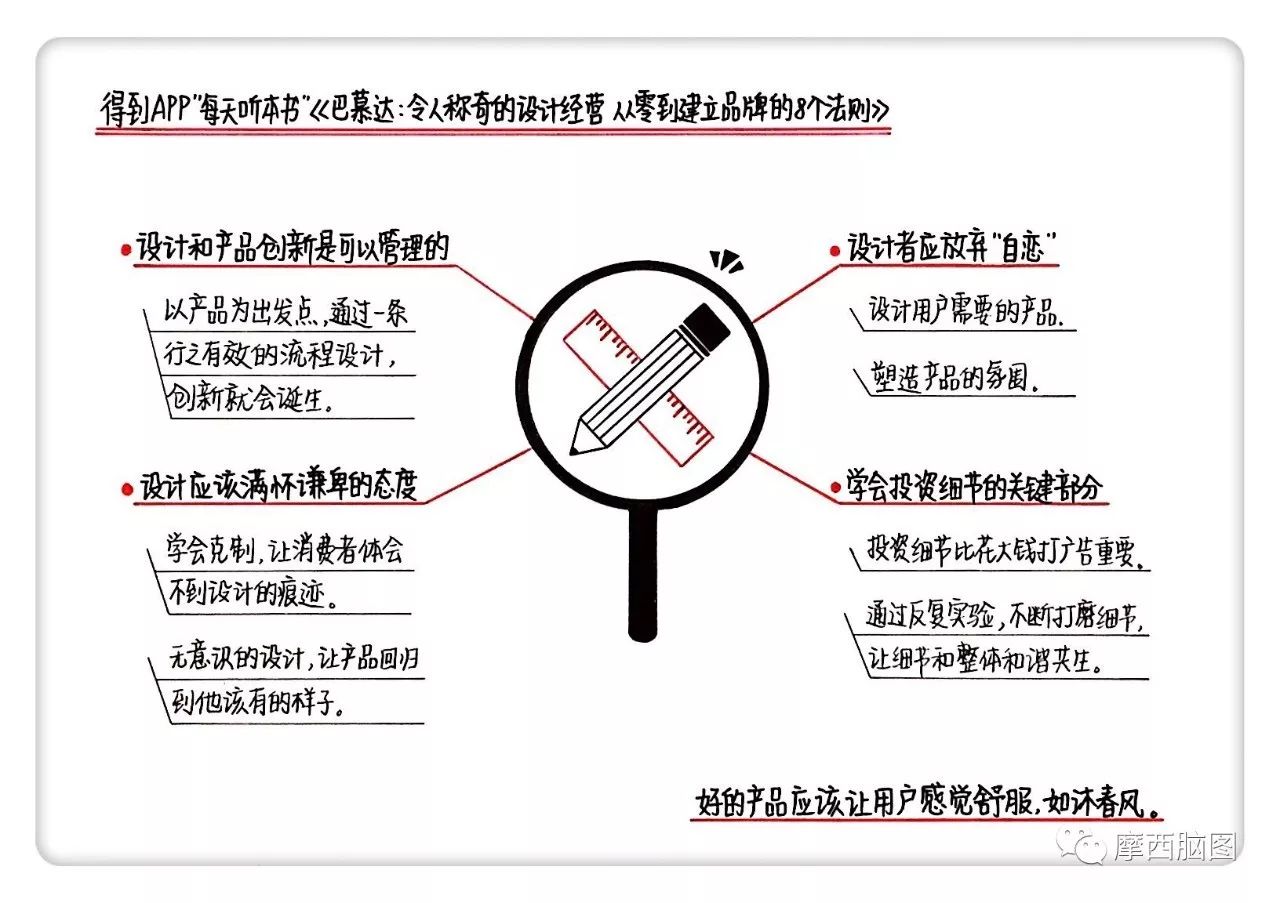 得到APP"每天听本书"《巴慕达:令人称奇的设计经营 从零到建立品牌的8个法则》
设计和产品创新是可以管理的
以产品为出发点,通过一条
行之有效的流程设计,
创新就会诞生。
设计应该满怀谦卑的态度
学会克制,让消费者体会
不到设计的痕迹。
无意识的设计,让产品回归
到他该有的样子。
设计者应放弃"自恋"
设计用户需要的产品.
塑造产品的氛围.
学会投资细节的关键部分
投资细节比花大钱打广告重要.
通过反复实验,不断打磨细节,
让细节和整体和谐共生。
好的产品应该让用户感觉舒服,如沐春风。
摩西脑图